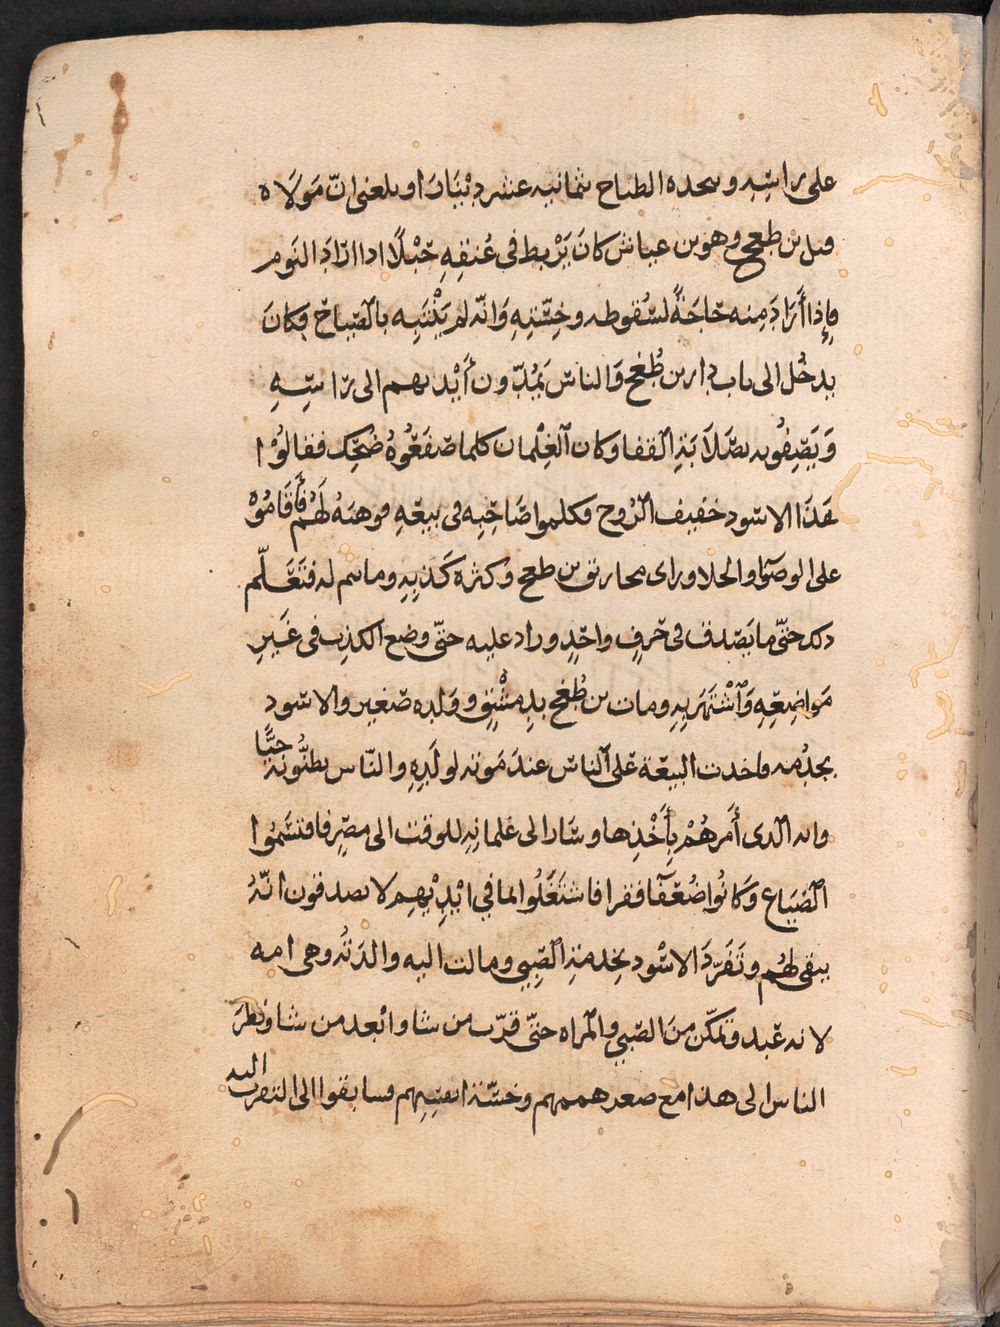 على راسِهِ وىىحده الطباح ثمانيه عشر دِيْنَارَا وبلعنى انّ مَولَاه
قبل بن طغج وهو بن عياش كانَ يَرْبط فى عُنقِهِ حَبْلًا ادا ارَادَ النَوم
فإذا أرَادَ مِنه حَاجَةً لسُقوطه وخِسَّتِهِ وَانّه لم يَنْتَبِه بالصِّيَاحِ فكانَ
يدخُل الى باب دار بن طُغج وَالناسُ يَمُدّون أَيْديهم الى رَاسِهِ
وَيَصِفُونه بصَلَابَةِ القفا وكان الغِلْمان كلما صَفَعُوهُ ضَحِك فقالُوْا
هَذَا الاسْود خفيف الرُوح فكلموا صَاحِبه فى بيعهِ فوهبَهُ لَهُم فأقَامُوْهُ
على الوضو والخلا وراى محارىق بن طعج وكثره كَذبِهِ وما ىىم له فتَعَلَّم
دلك حَتّى ما يَصْدق فى حَرفٍ واحدٍ وراد عليه حتّى وضع الكذِب فى غَيرِ
مَوَاضِعِهِ وَاشْتهَرَ بِهِ ومات بن طُغج بدِمشْقٍ ووَلَده صَغير والاسْود
يخدِمه واخدت البيعَة عَلى النّاس عندَ مَوته لولَدِهِ والنّاس يظنُّونه حَيًّا
وانه الّدى أَمرهُمْ بِأَخْذِها وسَارا لى غلمانه للوقت الى مصرٍ فاقتسَمُوا
الضّيَاع وَكانُوا ضُعَفَا فقرا فاشتَغَلُوا بما في ايْدِيْهِم لا ىصدقون انّهُ
يبقى لهُم وتَفَرّدَ الاسْود بخدمَةِ الصّبِي ومالت اليه والدَتُه وهى امه
لانه عَبد فتمكّن منَ الصّبي والمراه حتّى قرّب من شا وابْعد من شا ونظرَ
الناس الى هذا مع صعر هممهم وخسّة انفسِهم فسابقوا الى التقرب اليه